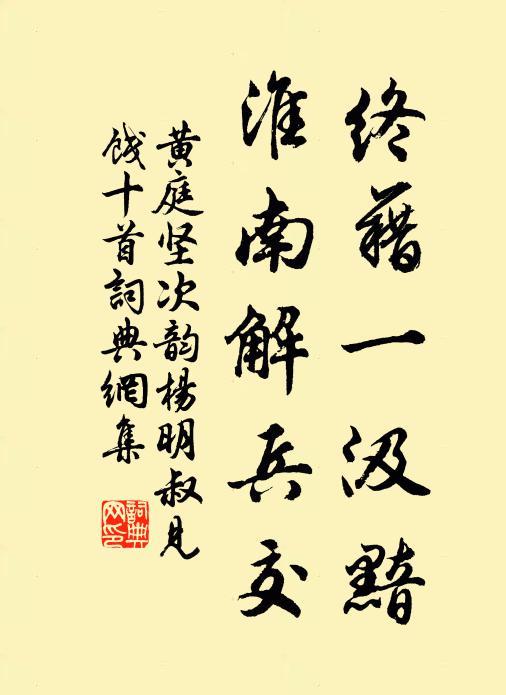 终藉一汲黯
淮南解兵交
黄庭坚次韵杨明叔见
饯十首詞典網集
詞典
网印